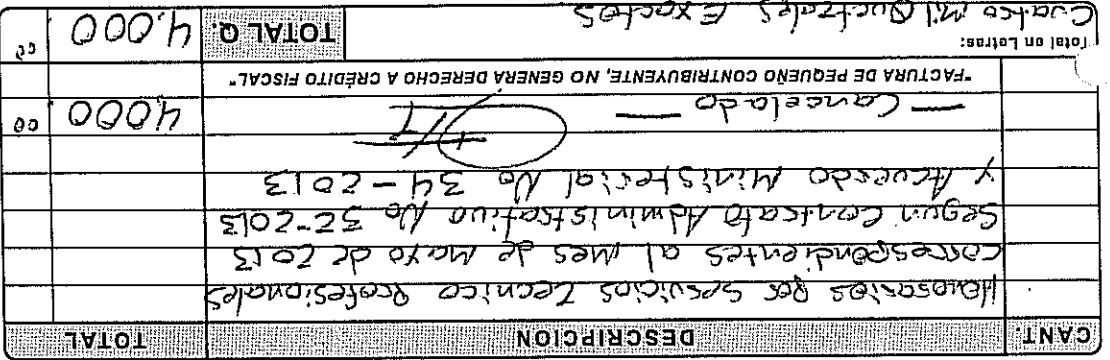 CANT. DESCRIPCION TOTAL
Honorarios Por Servicios Tecnico Profesionales
correspondientes al mes de Mayo de 2013
Segun Contrato Administrativo No 32-2013
y Acuerdo Ministerial No 34-2013
— Cancelado — 4,000 00
"FACTURA DE PEQUEÑO CONTRIBUYENTE, NO GENERA DERECHO A CRÉDITO FISCAL"
Total en Letras:
Cuatro Mil Quetzales Exactos TOTAL Q. 4,000 00